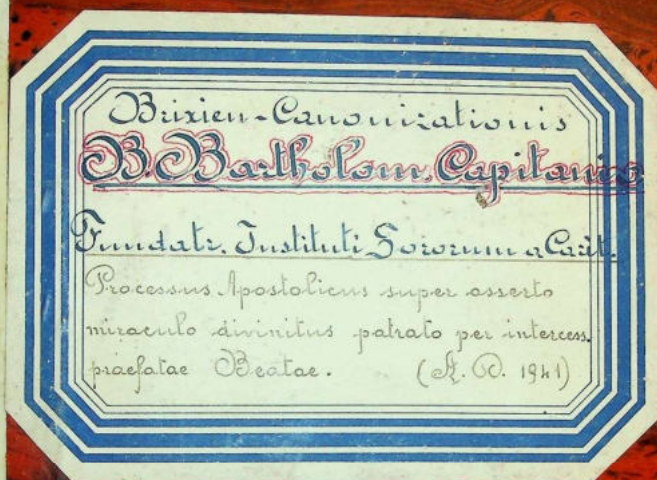 Brixien-Canonizationis
B. Bartholom. Capitanio
Fundatr. Instituti Sororum a Carit.
Processus Apostolicus super asserto
miraculo divinitus patrato per intercess.
praefatae Beatae. (A. D. 1941)